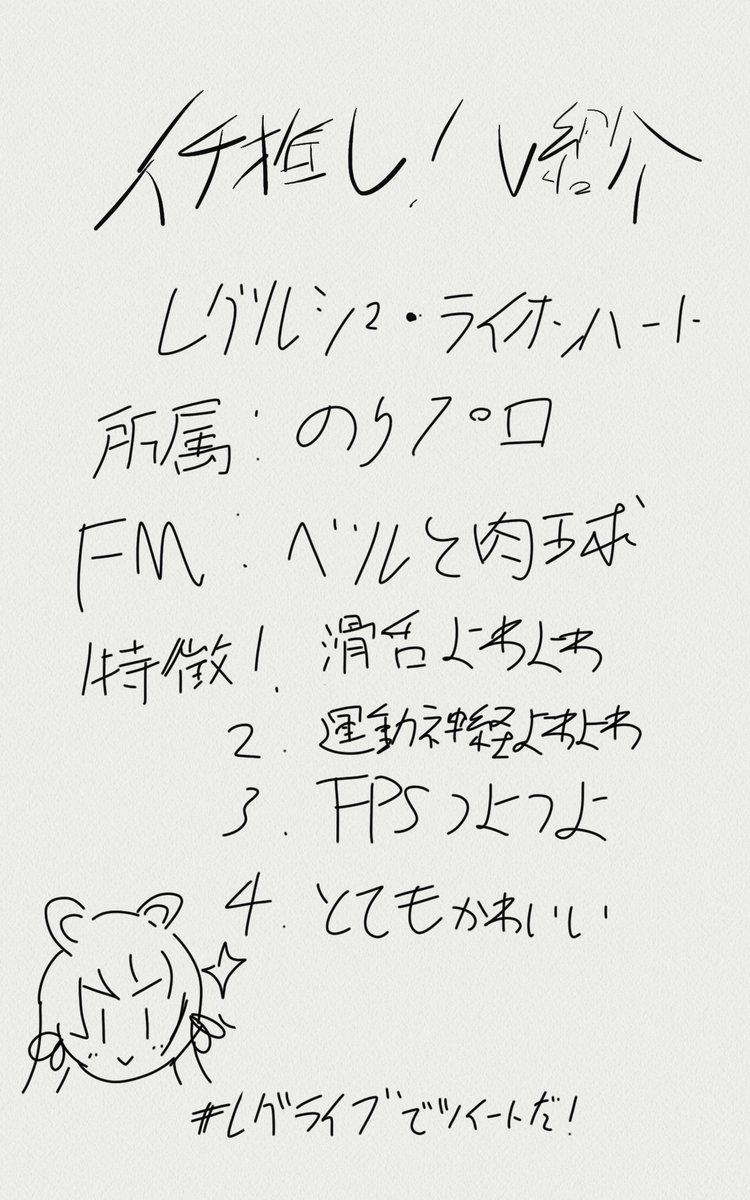 イチ推し！V紹介
レグルシュ・ライオンハート
所属：のりプロ
FM：ベルと肉球
特徴1. 滑舌よわよわ
2. 運動神経よわよわ
3. FPSつよつよ
4. とてもかわいい
#レグライブでツイートだ！